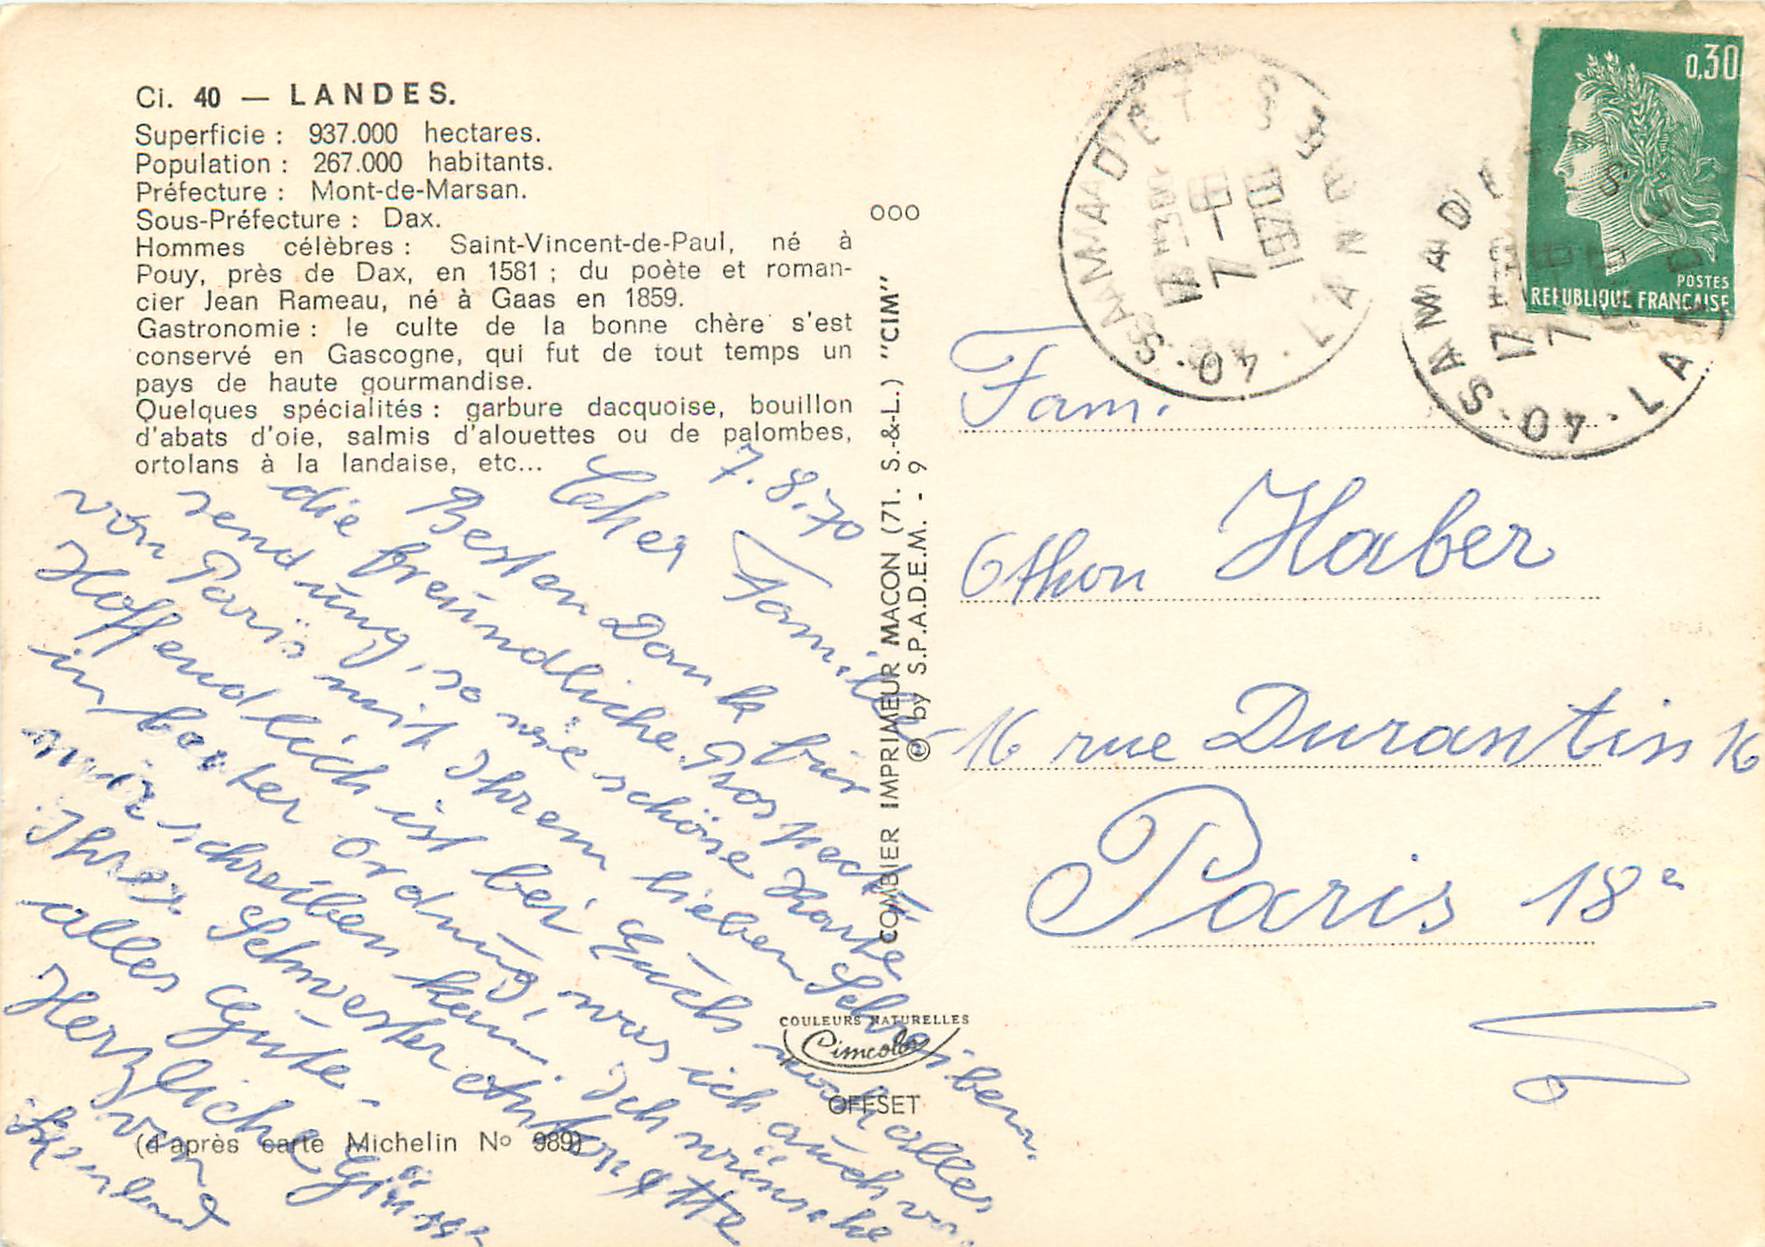 Ci. 40 — LANDES.
Superficie : 937.000 hectares.
Population : 267.000 habitants.
Préfecture : Mont-de-Marsan.
Sous-Préfecture : Dax.
Hommes célèbres : Saint-Vincent-de-Paul, né à
Pouy, près de Dax, en 1581 ; du poète et roman-
cier Jean Rameau, né à Gaas en 1859.
Gastronomie : le culte de la bonne chère s'est
conservé en Gascogne, qui fut de tout temps un
pays de haute gourmandise.
Quelques spécialités : garbure dacquoise, bouillon
d'abats d'oie, salmis d'alouettes ou de palombes,
ortolans à la landaise, etc...
7.8.70
Familie
Besten Dank für
die freundliche
sendung, so wie schöne Karte
von Paris mit Ihrem lieben Schreiben.
Hoffendlich ist bei Euch noch alles
in bester ordnung, was ich auch von
mir schreiben kann. Ich wünsche
Ihrer Schwester Antonette
alles Gute.
Herzliche Grüsse
von
(d'après carte Michelin No 989)
COMBIER IMPRIMEUR MACON (71. S.-&-L.) "CIM"
© by S.P.A.D.E.M. - 9
COULEURS NATURELLES
Cimcolor
OFFSET
000
40 - SAMADET - LANDES
17 H 30
7 - 8
1970
0,30
POSTES
REPUBLIQUE FRANÇAISE
40 - SAMADET - LANDES
17 H
7
Fam.
Othon Haber
16 rue Durantin 16
Paris 18e